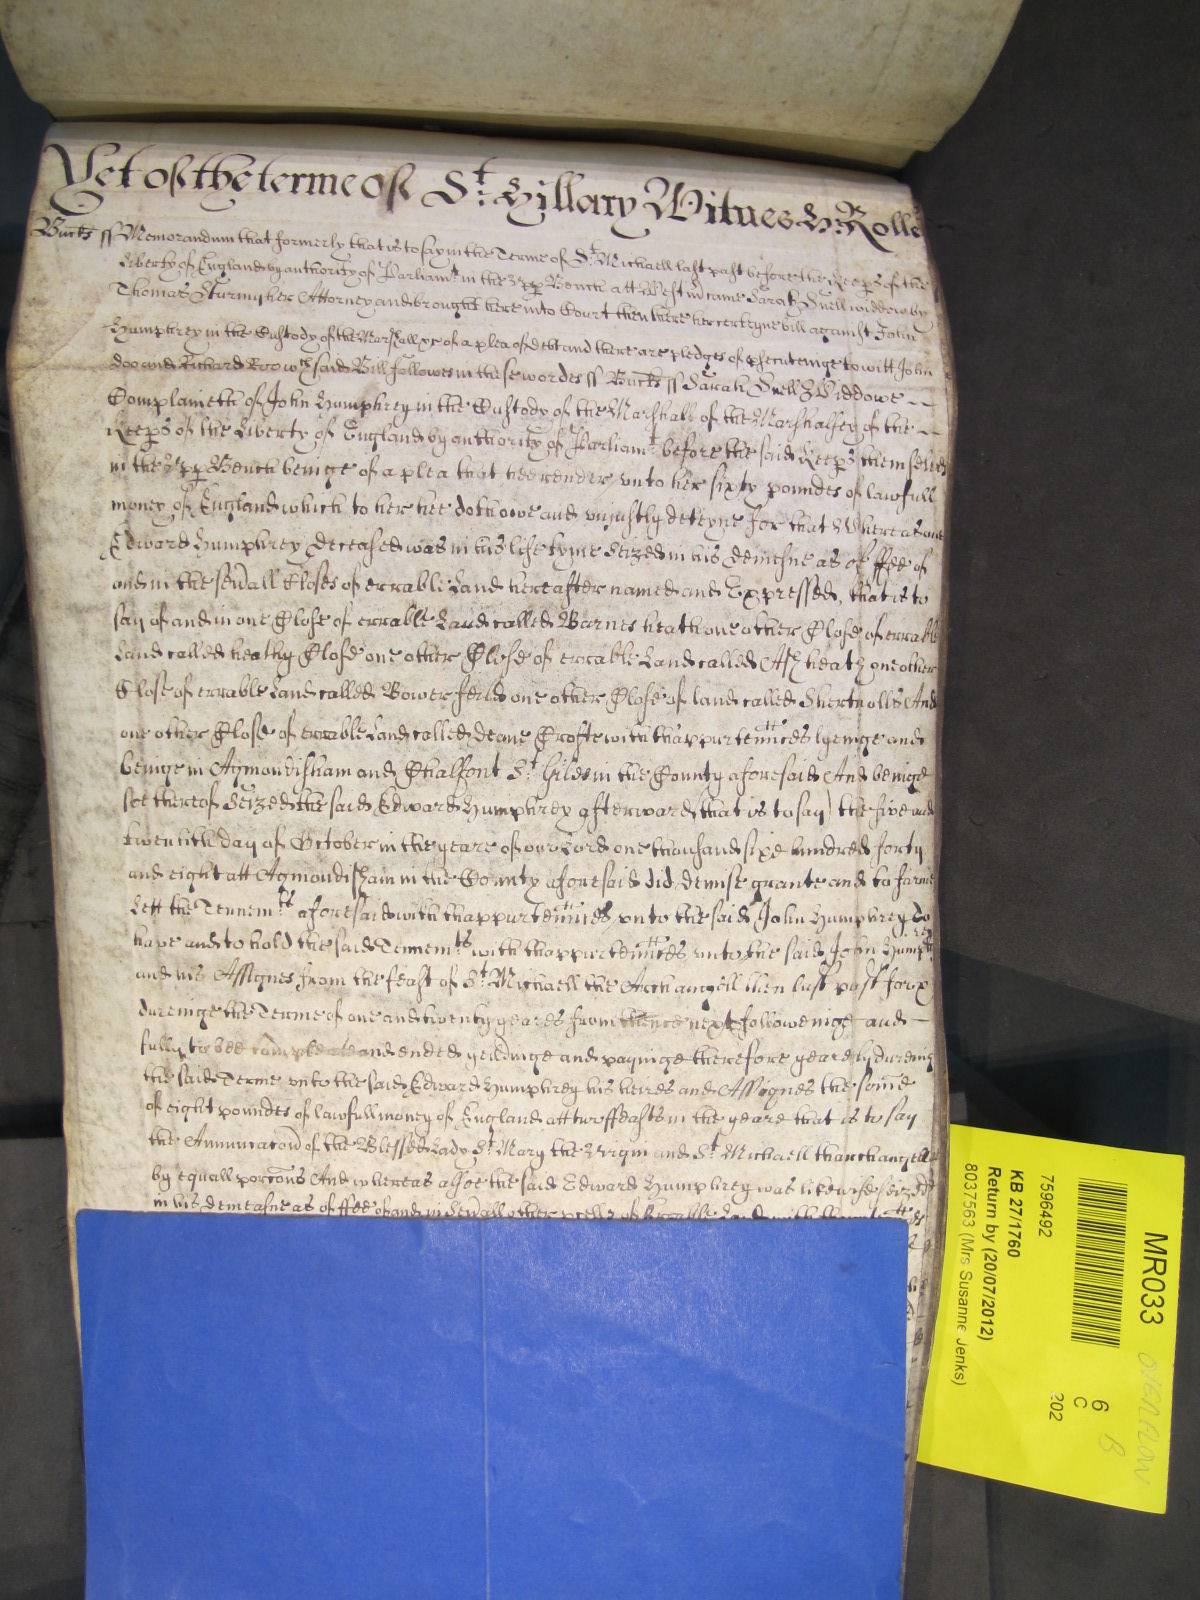 Yet of the terme of St: Hillary Witnes H: Rolle
Bucks ss Memorandum that formerly that is to say in the Terme of St. Michaell last past before the Keepers of the
liberty of England by authority of Parliamt in the Upper Bench att Westm came Sarah Snell widdow by
Thomas Sturmy her Attorney and brought here into Court then there her certeyne bill against John
Humphrey in the Custody of the Marshall &c of a plea of debt and there are pledges of prosecuteinge to witt John
doo and Richard Roo wch said Bill followes in these wordes ss Bucks ss Sarah Snell Widdowe
Complaineth of John Humphrey in the Custody of the Marshall of the Marshalsey of the
Keeps of the Liberty of England by authority of Parliamt before the said Keeps themselves
in the Upper Bench beinge of a plea that hee render vnto her sixty poundes of lawfull
money of England which to her hee doth owe and vniustly deteyne For that Whereas one
Edward Humphrey deceased was in his life tyme Seized in his demesne as of ffee of
and in the sevall Closes of errable Land hereafter named and Expressed, that is to
say of and in one Close of errable Land called Barnes heath one other Close of errable
Land called heathy Close one other Close of errable Land called Ash heath one other
Close of errable Land called Bower feild one other Close of land called Shertnolls And
one other Close of errable Land called deane Crofte with thappurtennces lyeinge and
beinge in Agmondisham and Chalfont St Giles in the County aforesaid And beinge
soe thereof Seized the said Edward Humphrey afterward (that is to say) the five and
twentith day of October in the yeare of our Lord one thousand sixe hundred forty
and eight att Agmondisham in the County aforesaid did demise grante and to farme
Lett the Tennemts aforesaid with thappurtennces vnto the said John Humphrey To
have and to hold the said Tennemts with thappurtennces vnto the said John Humphrey
and his Assignes from the feast of St Michaell the Archangell then last past for &
dureinge the Terme of one and twenty yeares from thence next followeinge and
fully to bee compleate and ended yeildinge and payinge therefore yearely dureing
the said Terme vnto the said Edward Humphrey his heires and Assignes the some
of eight poundes of lawfull money of England att two ffeasts in the yeare that is to say
the Annunciacon of the Blessed Lady St Mary the Virgin and St Michaell tharchangell
by equall porcons And whereas alsoe the said Edward Humphrey was likewise seized
in his demeasne as of ffee of and in sevall other pcells of Errable Land with
MR033
7596492
KB 27/1760
Return by (20/07/2012)
8037563 (Mrs Susanne Jenks)
6
C
202
OVERFLOW
B